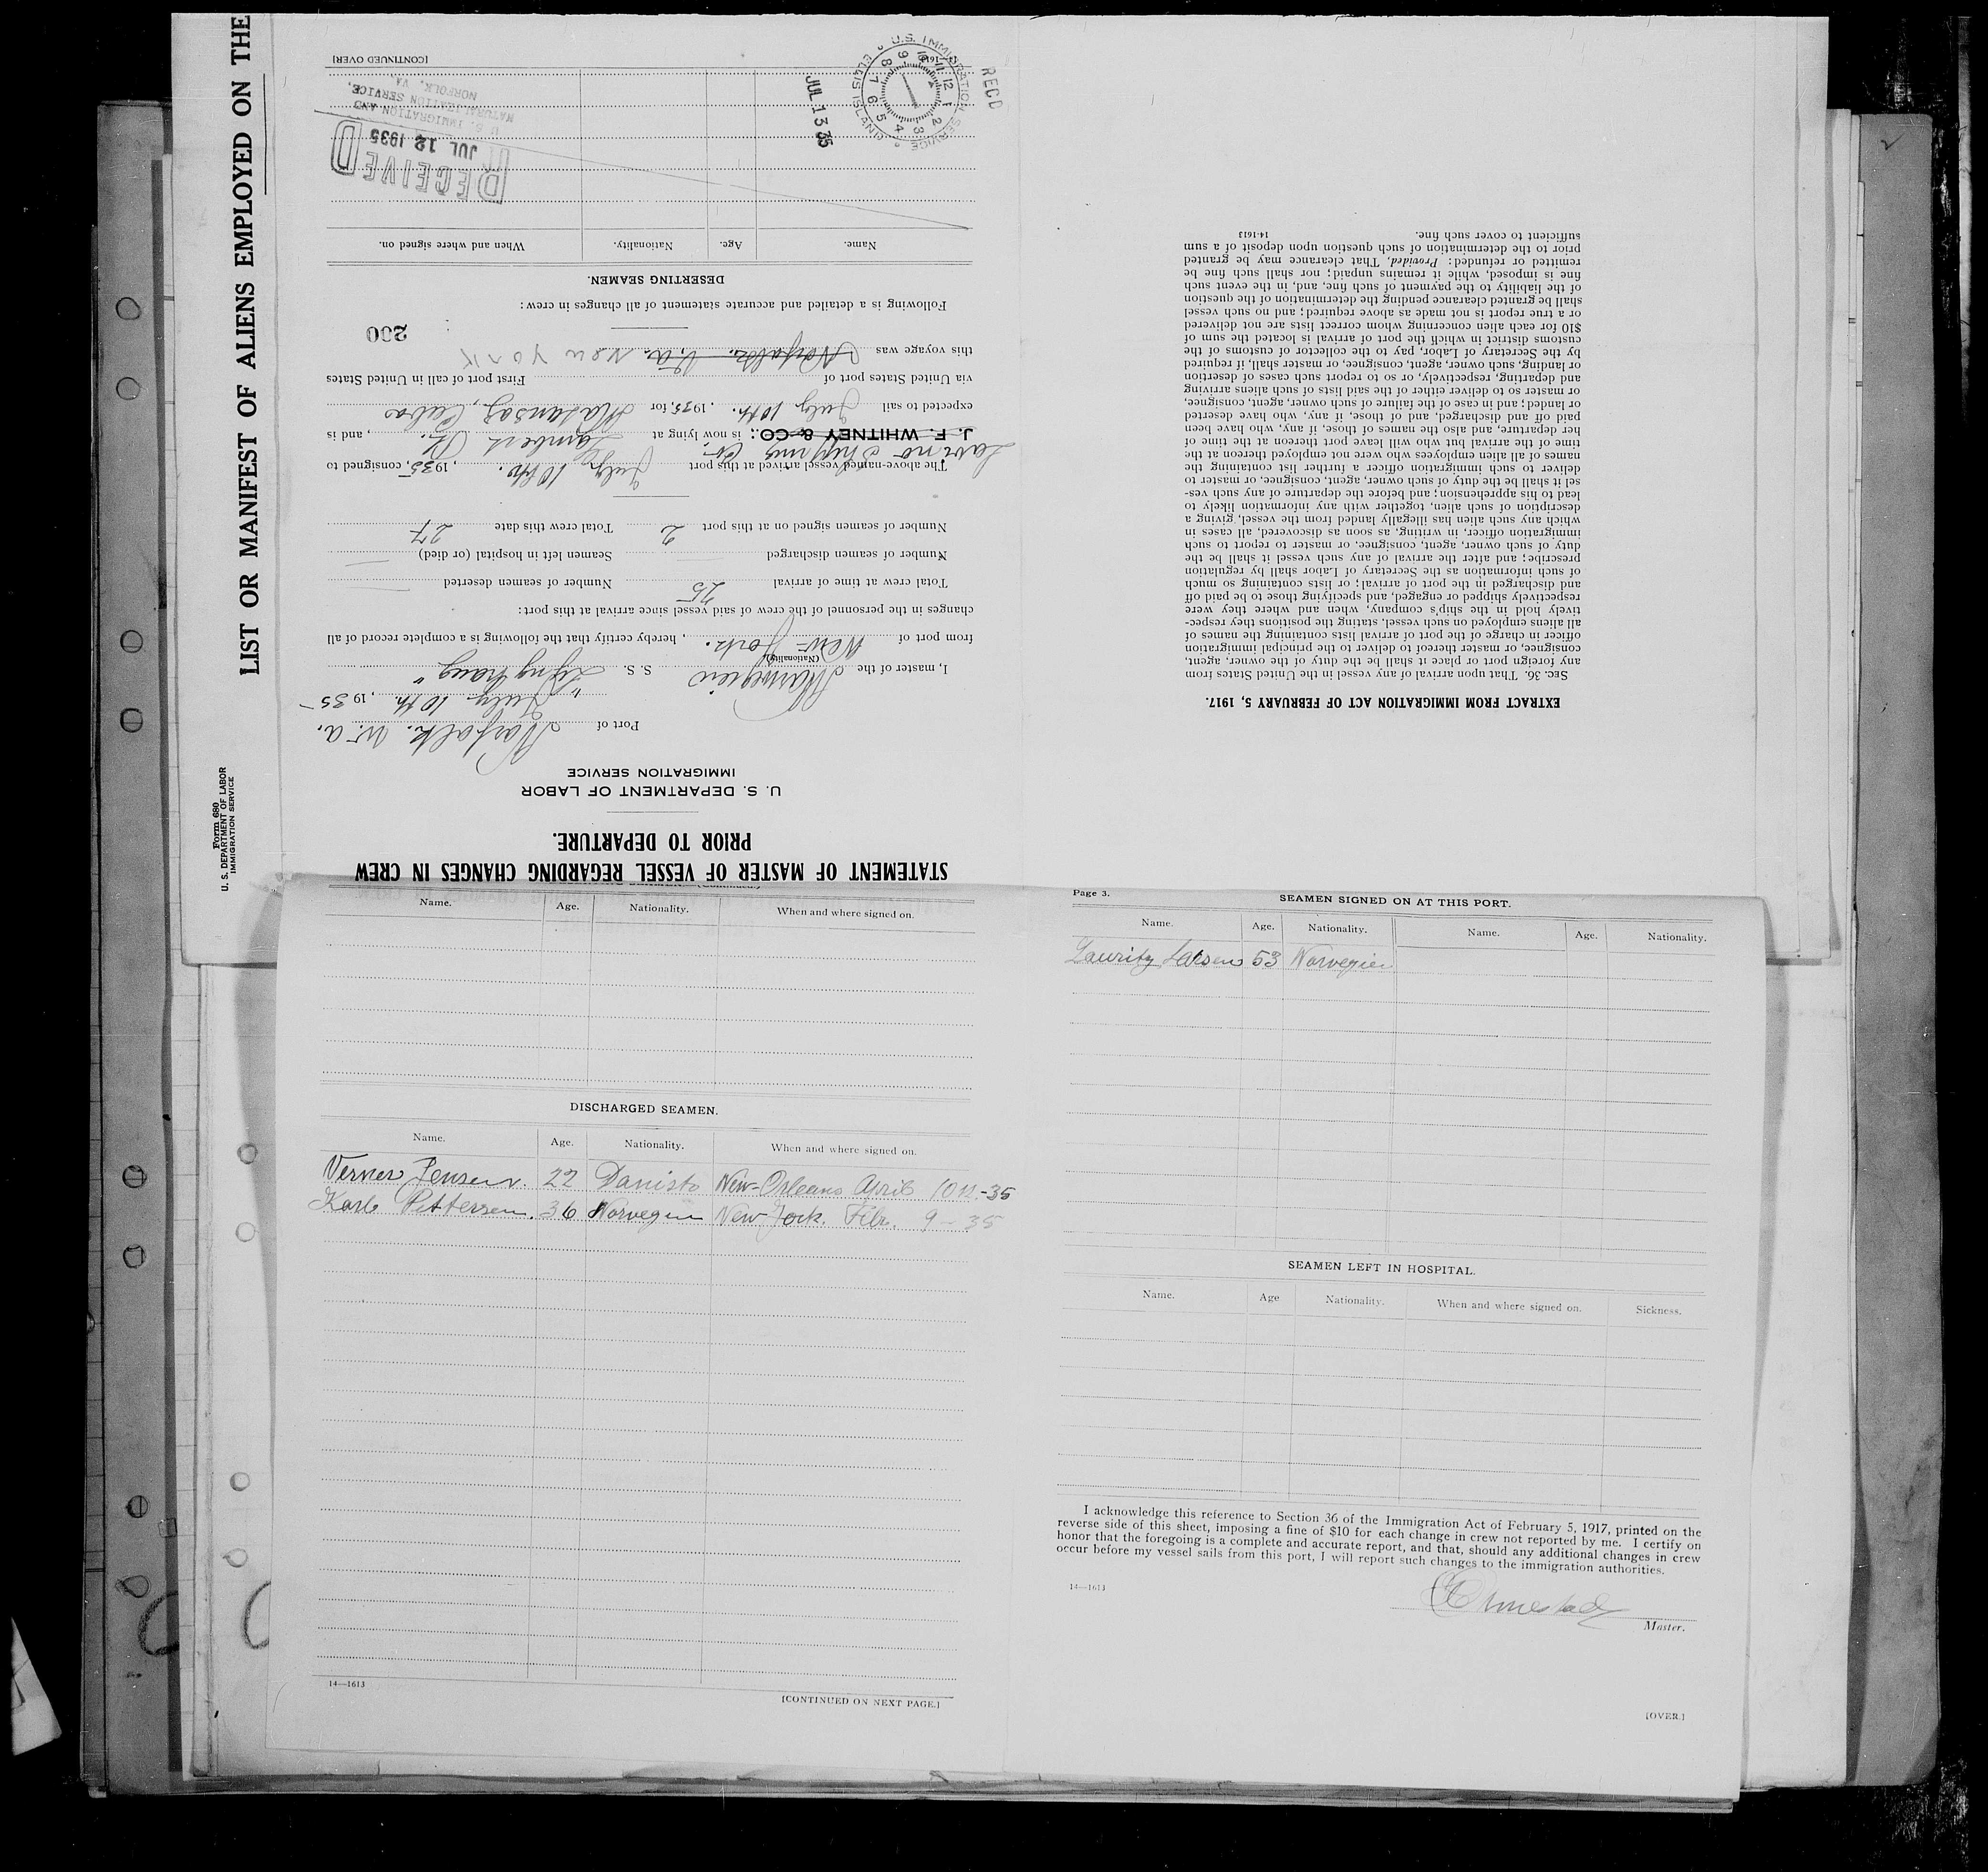 LIST OR MANIFEST OF ALIENS EMPLOYED ON THE
Form 680
U. S. DEPARTMENT OF LABOR
IMMIGRATION SERVICE
STATEMENT OF MASTER OF VESSEL REGARDING CHANGES IN CREW
PRIOR TO DEPARTURE.
U. S. DEPARTMENT OF LABOR
IMMIGRATION SERVICE
Port of Norfolk. Va.
July 10th. , 1935
I, master of the Norwegien S. S.
(Nationality)
from port of New York. , hereby certify that the following is a complete record of all
changes in the personnel of the crew of said vessel since arrival at this port:
Total crew at time of arrival 25 Number of seamen deserted
Number of seamen discharged Seamen left in hospital (or died)
Number of seamen signed on at this port 2 Total crew this date 27
The above-named vessel arrived at this port July 10th. , 1935, consigned to
Lavino Shipping Co.
J. F. WHITNEY & CO.; is now lying at Lambert Pt. , and is
expected to sail July 10th. , 1935, for Matansas, Cuba
via United States port of First port of call in United States
this voyage was Norfolk. Va. New York
200
Following is a detailed and accurate statement of all changes in crew:
DESERTING SEAMEN.
Name. Age. Nationality. When and where signed on.
RECEIVED
JUL 12 1935
U. S. IMMIGRATION AND
NATURALIZATION SERVICE,
NORFOLK, VA.
[CONTINUED OVER]
REC'D
U.S. IMMIGRATION SERVICE
ELLIS ISLAND
12 1 2 3 4 5 6 7 8 9 10 11
JUL 13 35
EXTRACT FROM IMMIGRATION ACT OF FEBRUARY 5, 1917.
SEC. 36. That upon arrival of any vessel in the United States from
any foreign port or place it shall be the duty of the owner, agent,
consignee, or master thereof to deliver to the principal immigration
officer in charge of the port of arrival lists containing the names of
all aliens employed on such vessel, stating the positions they respec-
tively hold in the ship's company, when and where they were
respectively shipped or engaged, and specifying those to be paid off
and discharged in the port of arrival; or lists containing so much
of such information as the Secretary of Labor shall by regulation
prescribe; and after the arrival of any such vessel it shall be the
duty of such owner, agent, consignee, or master to report to such
immigration officer, in writing, as soon as discovered, all cases in
which any such alien has illegally landed from the vessel, giving a
description of such alien, together with any information likely to
lead to his apprehension; and before the departure of any such ves-
sel it shall be the duty of such owner, agent, consignee, or master to
deliver to such immigration officer a further list containing the
names of all alien employees who were not employed thereon at the
time of the arrival but who will leave port thereon at the time of
her departure, and also the names of those, if any, who have been
paid off and discharged, and of those, if any, who have deserted
or landed; and in case of the failure of such owner, agent, consignee,
or master so to deliver either of the said lists of such aliens arriving
and departing, respectively, or so to report such cases of desertion
or landing, such owner, agent, consignee, or master shall, if required
by the Secretary of Labor, pay to the collector of customs of the
customs district in which the port of arrival is located the sum of
$10 for each alien concerning whom correct lists are not delivered
or a true report is not made as above required; and no such vessel
shall be granted clearance pending the determination of the question
of the liability to the payment of such fine, and, in the event such
fine is imposed, while it remains unpaid; nor shall such fine be
remitted or refunded: Provided, That clearance may be granted
prior to the determination of such question upon deposit of a sum
sufficient to cover such fine.
14-1613
Name. Age. Nationality. When and where signed on.
DISCHARGED SEAMEN.
Name. Age. Nationality. When and where signed on.
Verner Jensen. 22 Danish New-Orleans April 10th-35
Karl Pettersen. 36 Norvegien New York. Febr. 9-35
14—1613
[CONTINUED ON NEXT PAGE.]
Page 3.
SEAMEN SIGNED ON AT THIS PORT.
Name. Age. Nationality. Name. Age. Nationality.
Lauritz Larsen 53 Norvegien
SEAMEN LEFT IN HOSPITAL.
Name. Age Nationality. When and where signed on. Sickness.
I acknowledge this reference to Section 36 of the Immigration Act of February 5, 1917, printed on the
reverse side of this sheet, imposing a fine of $10 for each change in crew not reported by me. I certify on
honor that the foregoing is a complete and accurate report, and that, should any additional changes in crew
occur before my vessel sails from this port, I will report such changes to the immigration authorities.
14—1613
Master.
[OVER.]